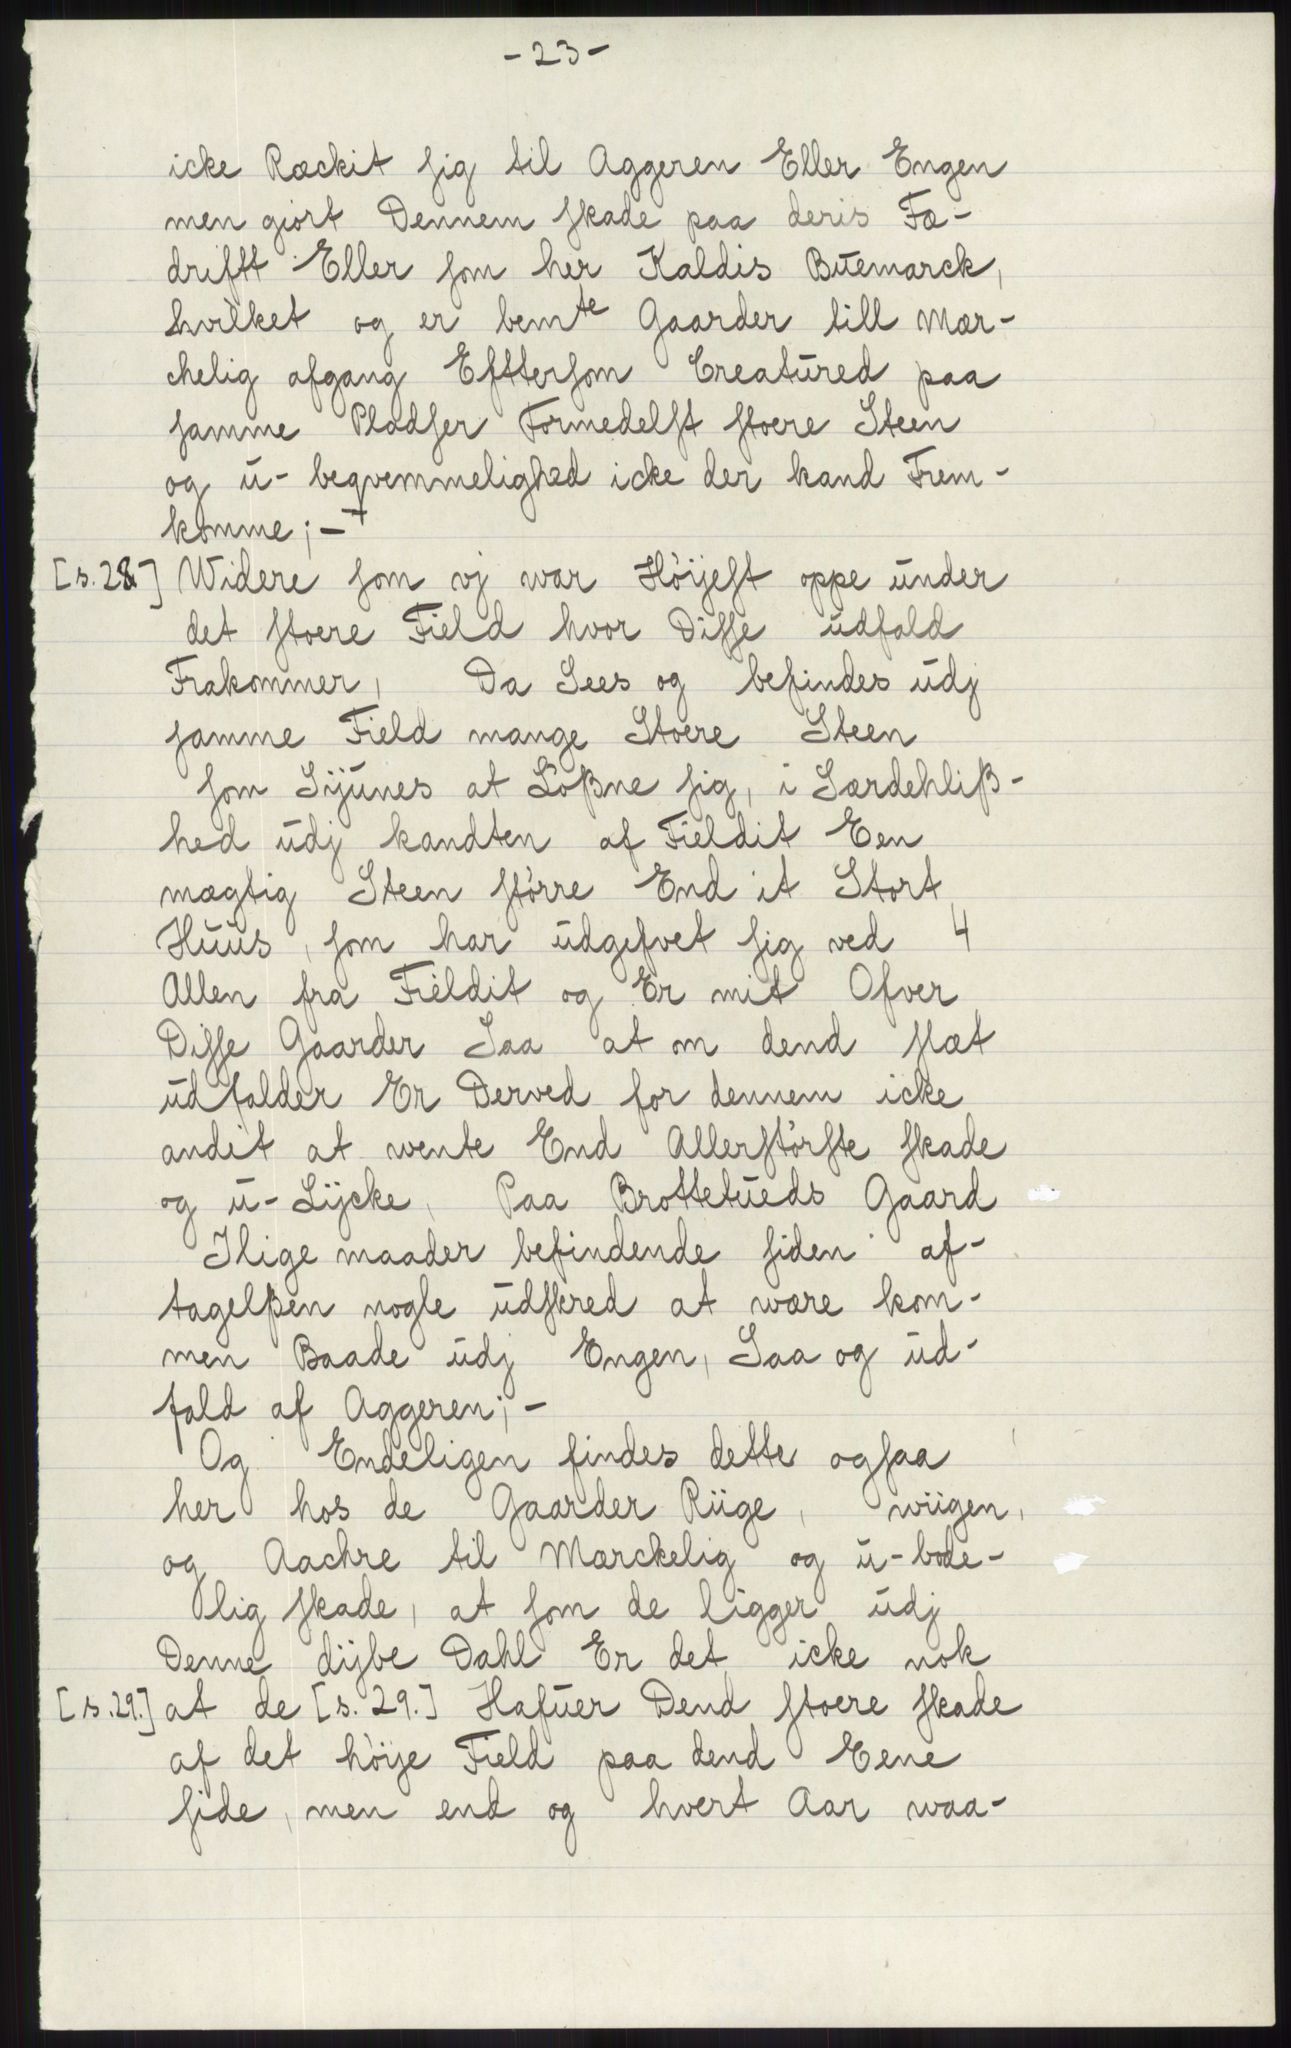 - 23 -
icke Ræckit sig til Aggeren Eller Engen
men giort Dennem skade paa deris Fæ-
drifft Eller som her Kaldis Buemarck,
hvilket og er bemte Gaarder till Mær-
chelig afgang Efftersom Creatured paa
samme Pladser Formedelst stoere Steen
og u- beqvemmelighed icke der kand Frem-
komme; -
[s. 28] Widere som vj war Høijest oppe under
det stoere Field hvor Disse udfald
Frakommer, Da Sees og befindes udj
samme Field mange Stoere Steen
som Sijunes at Løßne sig, i Særdehliß-
hed udj kandten af Fieldit Een
mægtig Steen større End it Stort
Huus, som har udgefvet sig ved 4
Allen fra Fieldit og Er mit Ofver
Disse Gaarder Saa at om dend slæt
udfalder Er Derved for dennem icke
andit at wente End Allerstørste skade
og u- Lÿcke, Paa Brottetueds Gaard
Ilige maader befindende siden af-
tagelßen nogle udskred at wære kom-
men Baade udj Engen, Saa og ud-
fald af Aggeren; -
Og Endeligen findes dette ogsaa
her hos de Gaarder Riige, wiigen,
og Aachre til Mærckelig og u-bode-
lig skade, at som de ligger udj
Denne dijbe Dahl Er det icke nok
[s. 29.] at de [s. 29.] Hafuer Dend stoere skade
af det høije Field paa dend Eene
side, men end og hvert Aar waa-